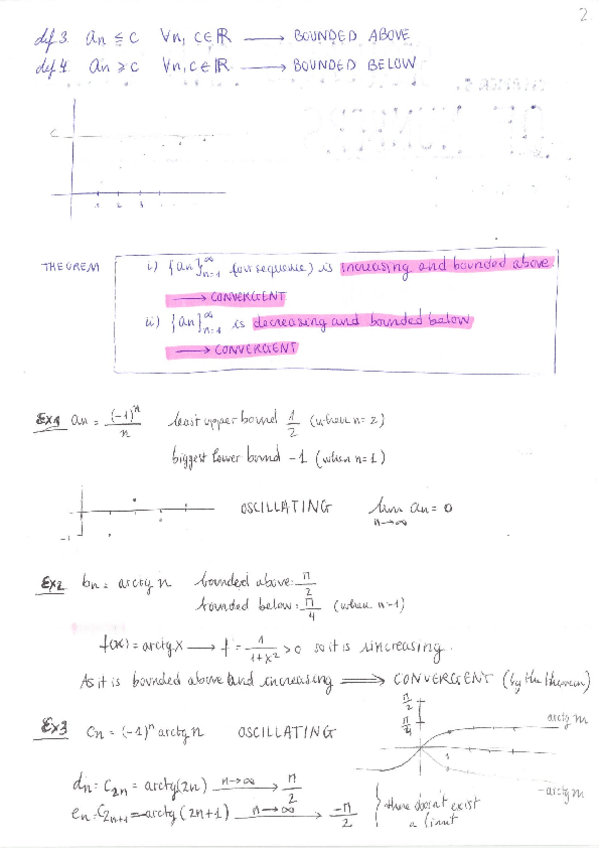 2
def 3. an ≤ c ∀n, c∈ℝ → BOUNDED ABOVE
def 4. an ≥ c ∀n, c∈ℝ → BOUNDED BELOW
c
1 2 3
THEOREM i) {an}∞n=1 (our sequence) is increasing and bounded above
→ CONVERGENT
ii) {an}∞n=1 is decreasing and bounded below
→ CONVERGENT
Ex1 an = (-1)^n / n least upper bound 1/2 (when n=2)
biggest lower bound -1 (when n=1)
-1 OSCILLATING lim n→∞ an = 0
Ex2 bn = arctg n bounded above: π/2
bounded below: π/4 (when n=1)
f(x) = arctg x → f' = 1/(1+x²) > 0 so it is increasing.
As it is bounded above and increasing ⟹ CONVERGENT (by the theorem)
Ex3 cn = (-1)^n arctg n OSCILLATING
π/2
π/4
arctg n
-arctg n
dn = C2n = arctg(2n) n→∞ → π/2
en = C2n+1 = -arctg(2n+1) n→∞ → -π/2 } there doesn't exist
a limit